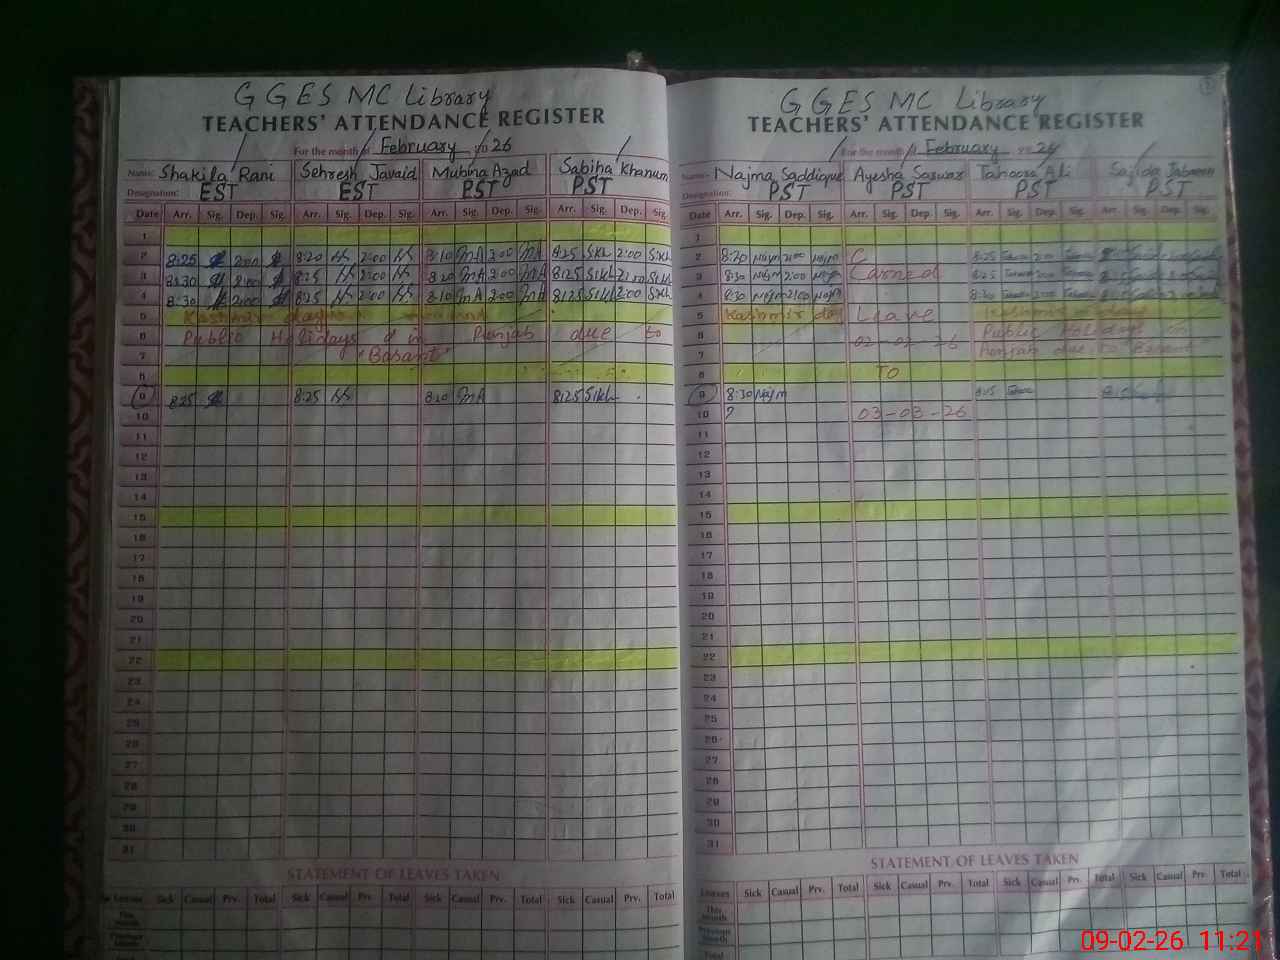 GGES MC Library
TEACHERS' ATTENDANCE REGISTER
For the month of February 20 26
Name: Shakila Rani Sehresh Javaid Mubina Azad Sabiha Khanum
Designation: EST EST PST PST
Date Arr. Sig. Dep. Sig. Arr. Sig. Dep. Sig. Arr. Sig. Dep. Sig. Arr. Sig. Dep. Sig.
1
2 8:25 2:00 8:20 2:00 8:10 MA 2:00 MA 8:25 SKh 2:00 SKh
3 8:30 2:00 8:25 2:00 8:20 MA 2:00 MA 8:25 SKh 2:00 SKh
4 8:30 2:00 8:25 2:00 8:10 MA 2:00 MA 8:25 SKh 2:00 SKh
5 Kashmir day
6 Public Holidays in Punjab due to
7 "Basant"
8
9 8:25 8:25 8:20 MA 8:25 SKh
10
11
12
13
14
15
16
17
18
19
20
21
22
23
24
25
26
27
28
29
30
31
STATEMENT OF LEAVES TAKEN
Leaves Sick Casual Prv. Total Sick Casual Prv. Total Sick Casual Prv. Total Sick Casual Prv. Total
This Month
Previous Month
GGES MC Library
TEACHERS' ATTENDANCE REGISTER
For the month of February 20 26
Name: Najma Saddique Ayesha Sarwar Tahoora Ali Sajida Jabeen
Designation: PST PST PST PST
Date Arr. Sig. Dep. Sig. Arr. Sig. Dep. Sig. Arr. Sig. Dep. Sig. Arr. Sig. Dep. Sig.
1
2 8:30 Najm 2:00 Najm 8:25 2:00
3 8:30 Najm 2:00 Najm Earned 8:25 2:00
4 8:30 Najm 2:00 Najm 8:20 2:00
5 Kashmir day Leave Kashmir day
6 02-02-26 Public Holidays in
7 Punjab due to "Basant"
8 TO
9 8:30 Najm 8:25
10 03-03-26
11
12
13
14
15
16
17
18
19
20
21
22
23
24
25
26
27
28
29
30
31
STATEMENT OF LEAVES TAKEN
Leaves Sick Casual Prv. Total Sick Casual Prv. Total Sick Casual Prv. Total Sick Casual Prv. Total
This Month
Previous Month
Total
09-02-26 11:21